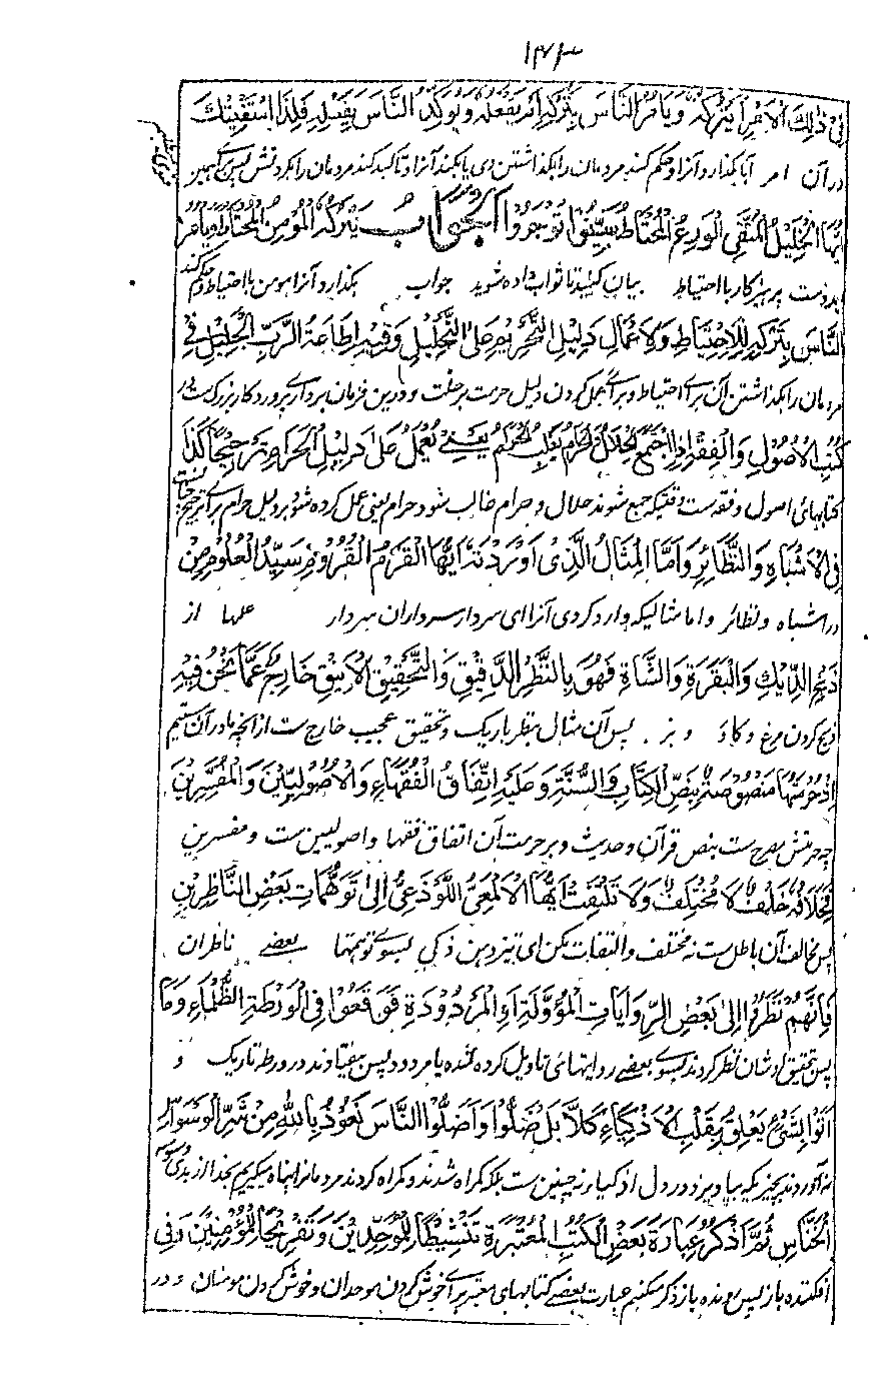 ۱۴۳
فِي ذٰلِكَ الْاَمْرِ اَيَتْرُكُهُ وَيَاْمُرُ النَّاسَ بِتَرْكِهِ اَمْ يَفْعَلُهُ وَيُوَكِّدُ النَّاسَ بِفِعْلِهِ فَلِذَا اسْتَفْتَيْتُكَ
در آن امر آیا بگذارد آنرا و حکم کند مردمان را بگذاشتن وی یا بکند آنرا و تاکید کند مردمان را بکردنش پس
اَيُّهَا الْخَلِيْلُ الْمُتَّقِي الْوَرِعُ الْمُحْتَاطُ بَيِّنُوْا تُوْجَرُوْا الجواب يَتْرُكُهُ الْمُؤْمِنُ الْمُحْتَاطُ وَيَاْمُرُ
ای دوست پرهیزگار با احتیاط بیان کنید تا ثواب داده شوید جواب بگذارد آنرا مومن با احتیاط و حکم کند
النَّاسَ بِتَرْكِهِ لِلْاِحْتِيَاطِ وَلِاِعْمَالِ دَلِيْلِ التَّحْرِيْمِ عَلَى التَّحْلِيْلِ وَفِيْهِ اِطَاعَةُ الرَّبِّ الْجَلِيْلِ فِي
مردمان را بگذاشتن آن برای احتیاط و برای عمل کردن دلیل حرمت بر حلت و درین فرمان برداری پروردگار بزرگ ست در
كُتُبِ الْاُصُوْلِ وَالْفِقْهِ اِذَا اجْتَمَعَ الْحَلَالُ وَالْحَرَامُ يَغْلِبُ الْمُحَرَّمُ يَعْنِيْ يُعْمَلُ عَلٰى دَلِيْلِ الْحَرَامِ تَرْجِيْحًا كَذَا
کتابهای اصول و فقه ست وقتیکه جمع شوند حلال و حرام غالب شود حرام یعنی عمل کرده شود بر دلیل حرام برای ترجیح
فِي الْاَشْبَاهِ وَالنَّظَائِرِ وَاَمَّا الْمِثَالُ الَّذِيْ اَوْرَدْتَهُ اَيُّهَا الْقَرْمُ الْقُرُوْمِ سَيِّدُ الْعُلُوْمِ مِنْ
در اشباه و نظائر و اما مثالیکه وارد کردی آنرا ای سردار سرداران سردار علمها از
ذَبْحِ الدِّيْكِ وَالْبَقَرَةِ وَالشَّاةِ فَهُوَ بِالنَّظَرِ الدَّقِيْقِ وَالتَّحْقِيْقِ الْاَنِيْقِ خَارِجٌ عَمَّا نَحْنُ فِيْهِ
ذبح کردن مرغ و گاؤ و بز پس آن مثال بنظر باریک و تحقیق عجیب خارج ست از آنچه ما در آن هستیم
اِذْ حُرْمَتُهَا مَنْصُوْصَةٌ بِنَصِّ الْكِتَابِ وَالسُّنَّةِ وَعَلَيْهِ اِتِّفَاقُ الْفُقَهَاءِ وَالْاُصُوْلِيِّيْنَ وَالْمُفَسِّرِيْنَ
چه حرمتش مصرح ست بنص قرآن و حدیث و بر حرمت آن اتفاق فقها و اصولیین ست و مفسرین
فَخِلَافُهُ خَلْفٌ لَا مُخْتَلِفٌ وَلَا تَلْتَفِتْ اَيُّهَا الْاَلْمَعِيُّ اللَّوْذَعِيُّ اِلٰى تَوَهُّمَاتِ بَعْضِ النَّاظِرِيْنَ
پس مخالف آن باطل ست نه مختلف و التفات مکن ای تیز ذهن ذکی بسوی توهمها بعضے ناظران
فَاِنَّهُمْ نَظَرُوْا اِلٰى بَعْضِ الرِّوَايَاتِ الْمُؤَوَّلَةِ اَوِ الْمَرْدُوْدَةِ فَوَقَعُوْا فِي الْوَرْطَةِ الظَّلْمَاءِ وَمَا
پس تحقیق اوشان نظر کردند بسوی بعضے روایتهای تاویل کرده شده یا مردود پس بیفتاوند در ورطهٔ تاریک و
اَتَوْا بِشَيْءٍ يَعْلِقُ بِقَلْبِ الْاَذْكِيَاءِ كَلَّا بَلْ ضَلُّوْا وَاَضَلُّوا النَّاسَ نَعُوْذُ بِاللّٰهِ مِنْ شَرِّ الْوَسْوَاسِ
نه آوردند چیزیکه بیاویزد در دل اذکیا نه چنین ست بلکه گمراه شدند و گمراه کردند مردمان را پناه میگیریم بخدا از بدی وسوسه
الْخَنَّاسِ ثُمَّ اَذْكُرُ عِبَارَةَ بَعْضِ الْكُتُبِ الْمُعْتَبَرَةِ تَنْشِيْطًا لِلْمُوَحِّدِيْنَ وَتَفْرِيْحًا لِلْمُؤْمِنِيْنَ وَفِي
افگننده باز پس رونده باز ذکر میکنم عبارت بعضے کتابهای معتبر برای خوش کردن موحدان و خوش کردن مومنان و در